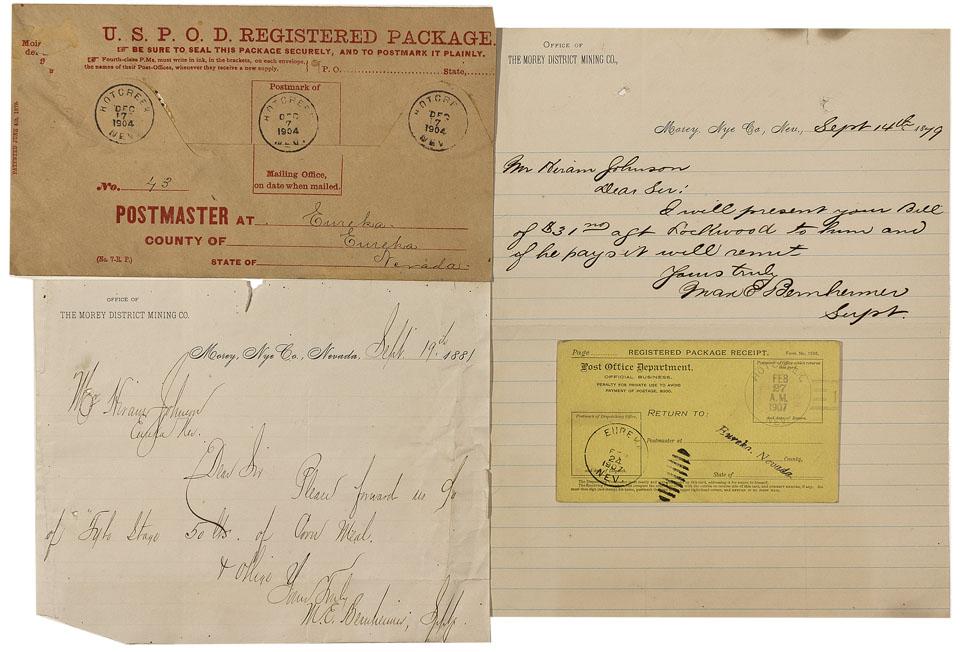 U. S. P. O. D. REGISTERED PACKAGE.
☞ BE SURE TO SEAL THIS PACKAGE SECURELY, AND TO POSTMARK IT PLAINLY.
☞ Fourth-class P.Ms. must write in ink, in the brackets, on each envelope,
the names of their Post-Offices, whenever they receive a new supply.
P. O. State,
HOTCREEK
DEC
17
1904
NEV.
Postmark of
HOTCREEK
DEC
7
1904
NEV.
HOTCRE
DEC
7
1904
NEV.
Mailing Office,
on date when mailed.
No. 43
POSTMASTER AT Eureka
COUNTY OF Eureka
STATE OF Nevada.
(No. 7-R. P.)
OFFICE OF
THE MOREY DISTRICT MINING CO.,
Morey, Nye Co., Nev., Sept 14th 1879
Mr Hiram Johnson
Dear Sir:
I will present your Bill
of $31 agt Lockwood to him and
if he pays it will remit
Yours truly
Max E Bernheimer
Supt.
OFFICE OF
THE MOREY DISTRICT MINING CO.
Morey, Nye Co., Nevada, Sept. 19th 1881
Mr. Hiram Johnson
Eureka Nev.
Dear Sir
Please forward us
of Stage 50 lbs. of Corn Meal.
& Oblige Yours Truly
M. E. Bernheimer,
Page REGISTERED PACKAGE RECEIPT.
Post Office Department.
OFFICIAL BUSINESS.
PENALTY FOR PRIVATE USE TO AVOID
PAYMENT OF POSTAGE, $300.
FEB
27
A.M.
1907
Postmark of Dispatching Office.
RETURN TO:
EUREK
24
1907
NEV.
Postmaster at
Eureka, Nevada
County,
State of